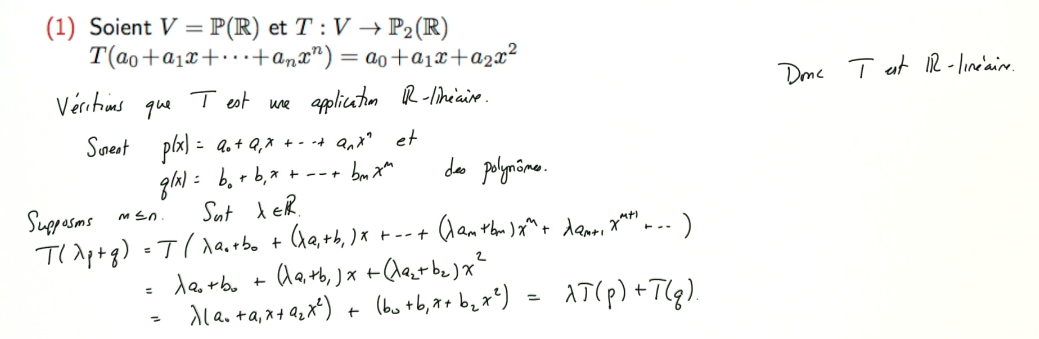 (1) Soient V = ℙ(ℝ) et T : V → ℙ₂(ℝ)
T(a₀+a₁x+⋯+aₙxⁿ) = a₀+a₁x+a₂x²
Vérifions que T est une application ℝ-linéaire.
Soient p(x) = a₀ + a₁x + --+ aₙxⁿ et
q(x) = b₀ + b₁x + --+ bₘxᵐ des polynômes.
Supposons m≤n. Soit λ∈ℝ.
T(λp+q) = T(λa₀+b₀ + (λa₁+b₁)x +--+ (λaₘ+bₘ)xᵐ + λaₘ₊₁xᵐ⁺¹ +--)
= λa₀+b₀ + (λa₁+b₁)x + (λa₂+b₂)x²
= λ(a₀+a₁x+a₂x²) + (b₀+b₁x+b₂x²) = λT(p)+T(q).
Donc T est ℝ-linéaire.